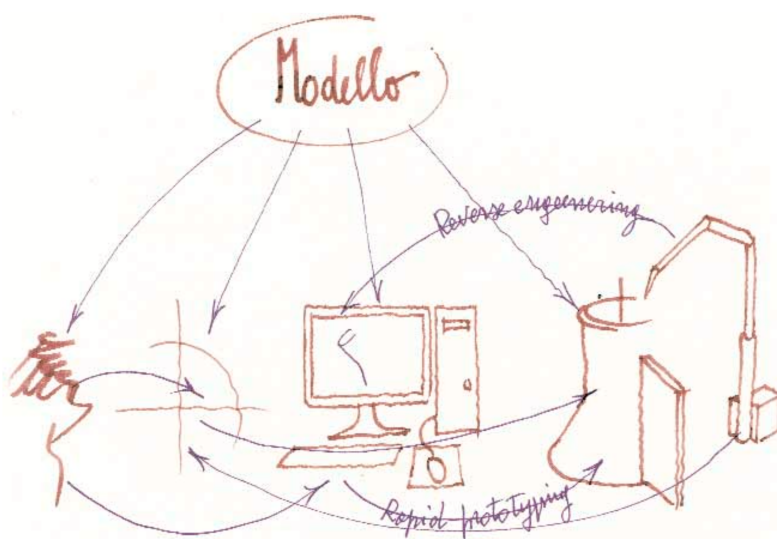 Modello
Reverse engeenering
Rapid prototyping